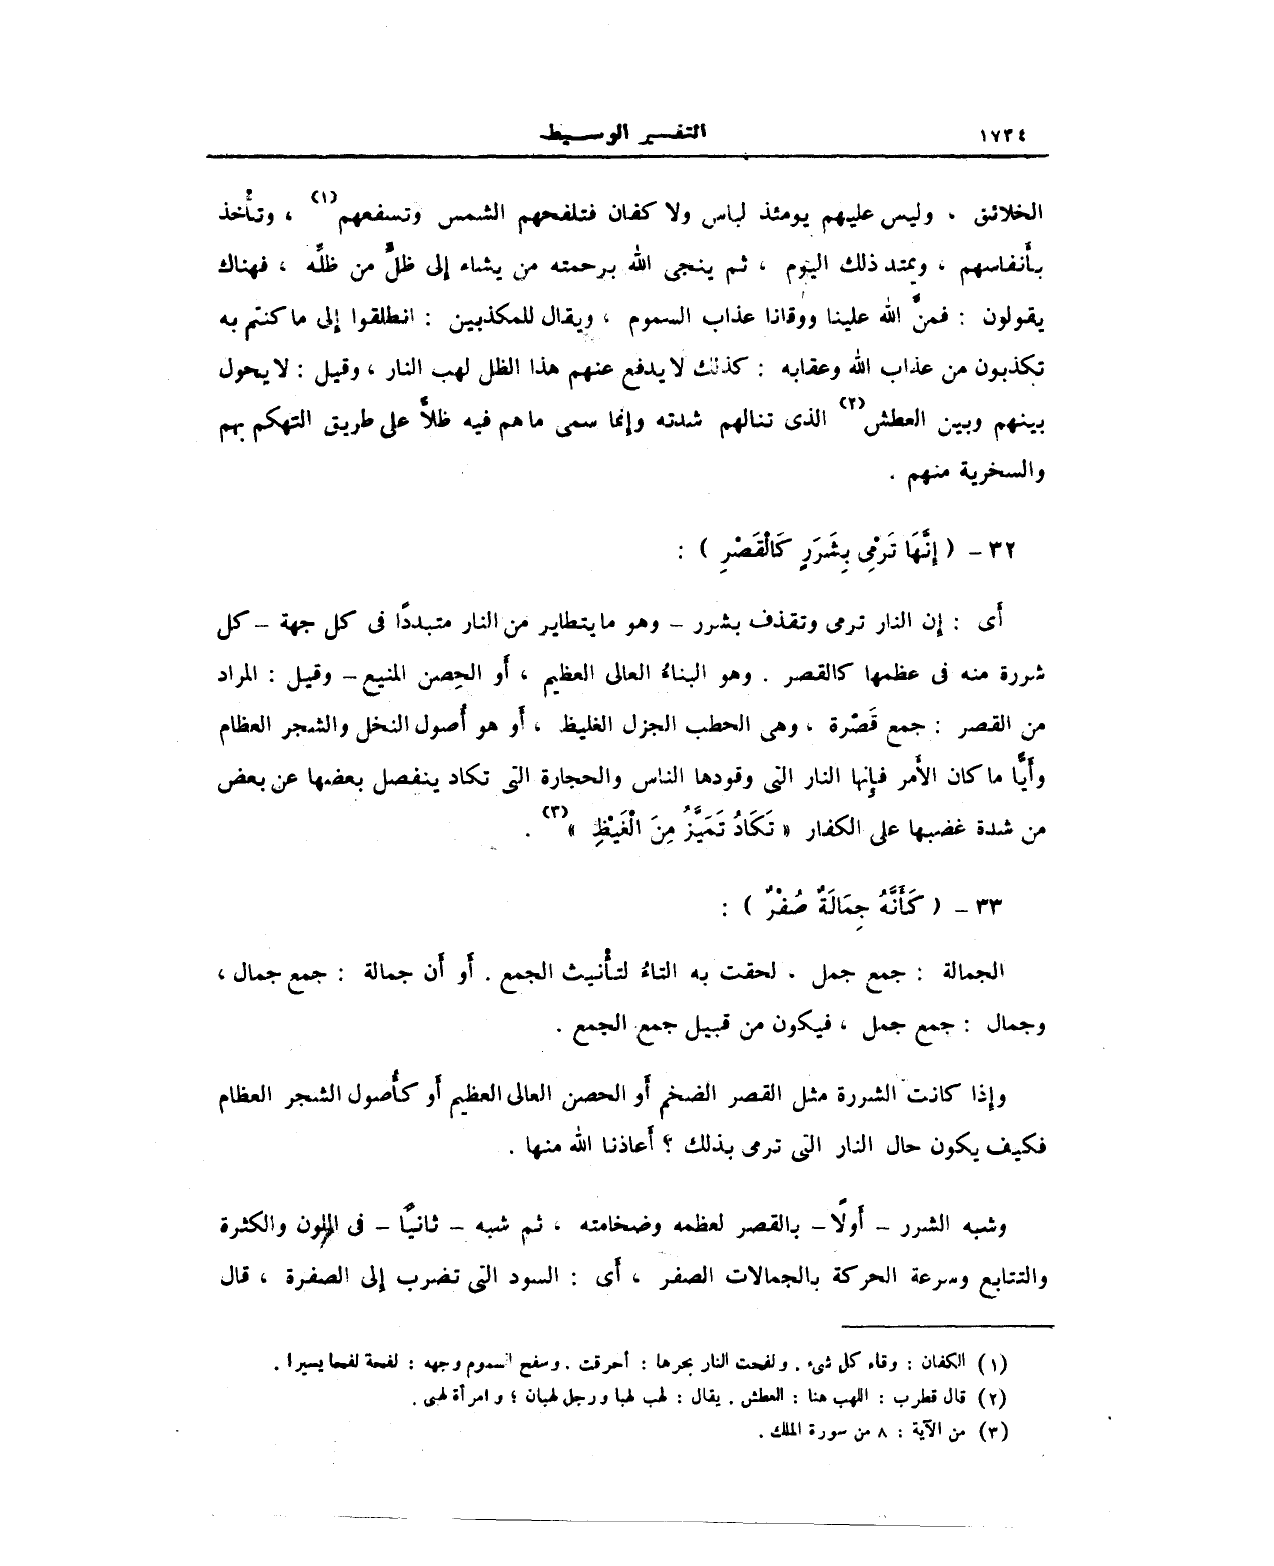 ١٧٣٤
التفسير الوسيط
الخلائق ، وليس عليهم يومئذ لباس ولا كفان فتلفحهم الشمس وتسفعهم(١) ، وتأخذ
بأنفاسهم ، ويمتد ذلك اليوم ، ثم ينجى الله برحمته من يشاء إلى ظلٍّ من ظلِّه ، فهناك
يقولون : فمنَّ الله علينا ووقانا عذاب السموم ، ويقال للمكذبين : انطلقوا إلى ما كنتم به
تكذبون من عذاب الله وعقابه : كذلك لا يدفع عنهم هذا الظل لهب النار ، وقيل : لا يحول
بينهم وبين العطش(٢) الذى تنالهم شدته وإنما سمى ما هم فيه ظلاًّ على طريق التهكم بهم
والسخرية منهم .
٣٢ – ( إِنَّهَا تَرْمِى بِشَرَرٍ كَالْقَصْرِ ) :
أى : إن النار ترمى وتقذف بشرر – وهو ما يتطاير من النار متبددًا فى كل جهة – كل
شررة منه فى عظمها كالقصر . وهو البناءُ العالى العظيم ، أو الحِصن المنيع – وقيل : المراد
من القصر : جمع قَصْرة ، وهى الحطب الجزل الغليظ ، أو هو أُصول النخل والشجر العظام
وأيًّا ما كان الأمر فإنها النار التى وقودها الناس والحجارة التى تكاد ينفصل بعضها عن بعض
من شدة غضبها على الكفار « تَكَادُ تَمَيَّزُ مِنَ الْغَيْظِ »(٣) .
٣٣ – ( كَأَنَّهُ جِمَالَةٌ صُفْرٌ ) :
الجمالة : جمع جمل . لحقت به التاءُ لتأنيث الجمع . أو أن جمالة : جمع جمال ،
وجمال : جمع جمل ، فيكون من قبيل جمع الجمع .
وإذا كانت الشررة مثل القصر الضخم أو الحصن العالى العظيم أو كأُصول الشجر العظام
فكيف يكون حال النار التى ترمى بذلك ؟ أعاذنا الله منها .
وشبه الشرر – أولًا – بالقصر لعظمه وضخامته ، ثم شبه – ثانيًا – فى اللون والكثرة
والتتابع وسرعة الحركة بالجمالات الصفر ، أى : السود التى تضرب إلى الصفرة ، قال
(١) الكفان : وقاء كل شىء . ولفحت النار بحرها : أحرقت . وسفع السموم وجهه : لفحة لفحا يسيرا .
(٢) قال قطرب : اللهب هنا : العطش . يقال : لهب لهبا ورجل لهبان ؛ وامرأة لهبى .
(٣) من الآية : ٨ من سورة الملك .